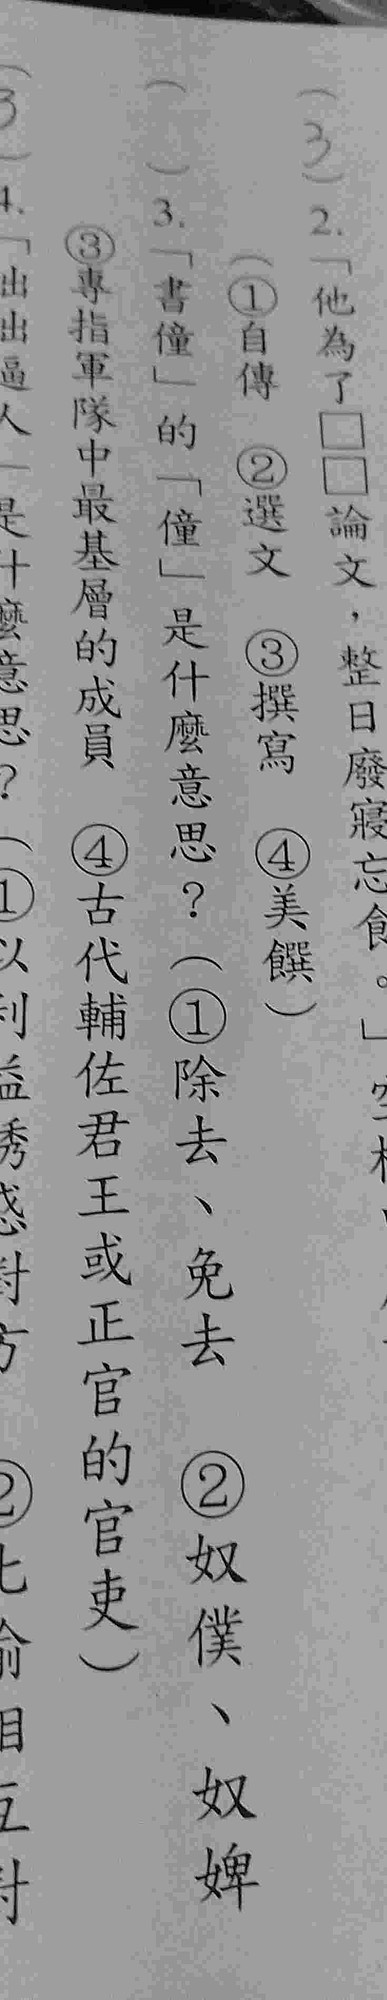 (3)2.「他為了□□論文，整日廢寢忘食。」空格
(①自傳 ②選文 ③撰寫 ④美饌)
( )3.「書僮」的「僮」是什麼意思？(①除去、免去 ②奴僕、奴婢
③專指軍隊中最基層的成員 ④古代輔佐君王或正官的官吏)
(3)4.「咄咄逼人」是什麼意思？(①以利益誘惑對方 ②比喻相互對